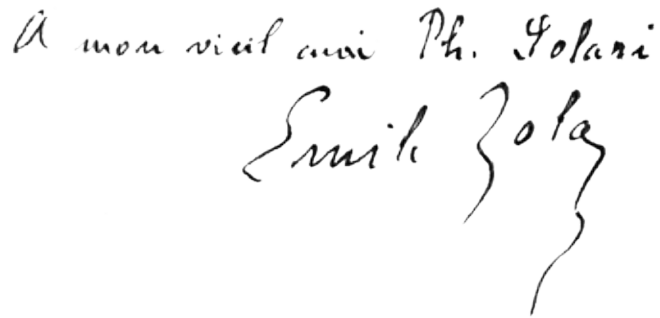 A mon vieil ami Ph. Solari
Emile Zola